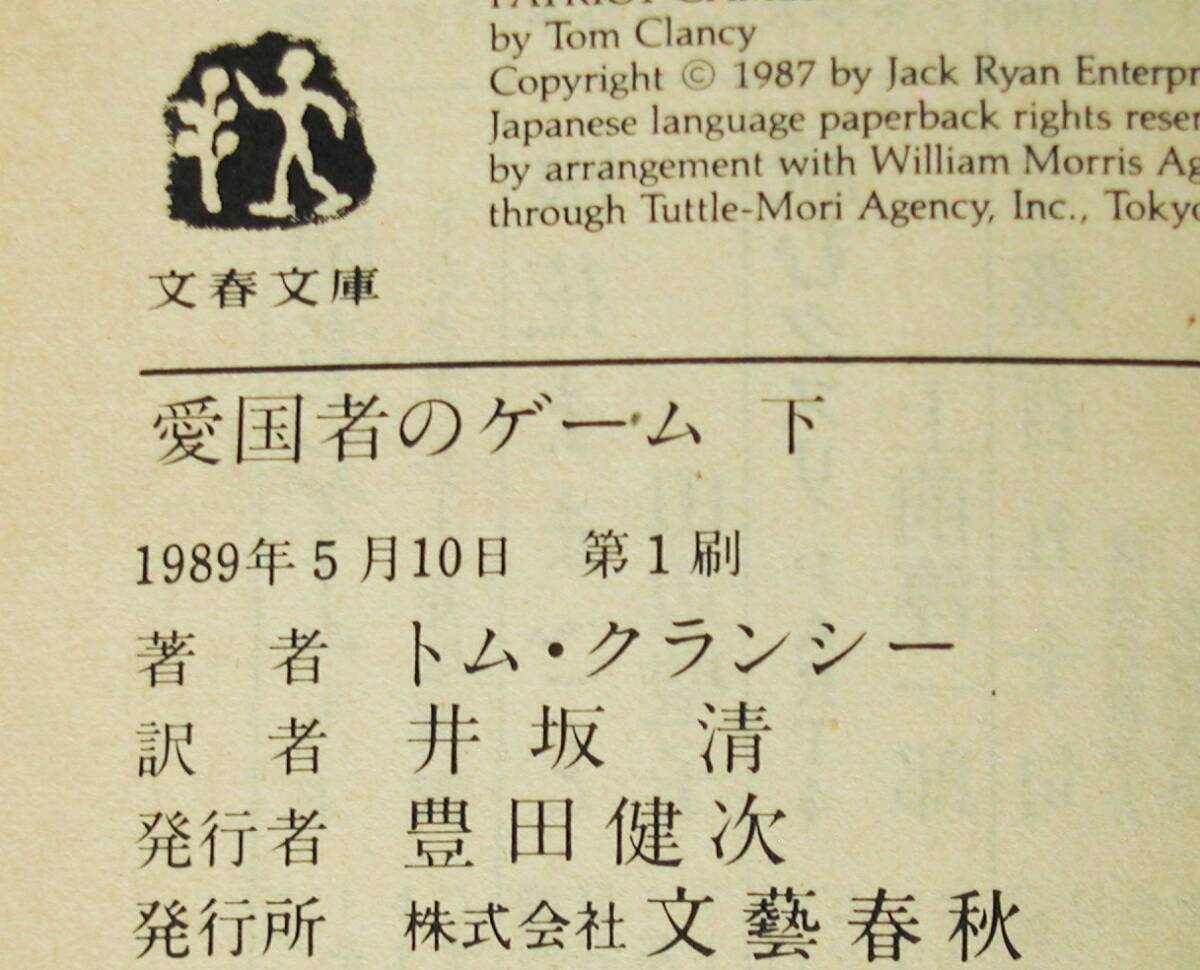 by Tom Clancy
Copyright © 1987 by Jack Ryan
Japanese language paperback rights
by arrangement with William Morris
through Tuttle-Mori Agency, Inc., Tokyo
文春文庫
愛国者のゲーム 下
1989年5月10日 第1刷
著者 トム・クランシー
訳者 井坂 清
発行者 豊田健次
発行所 株式会社文藝春秋